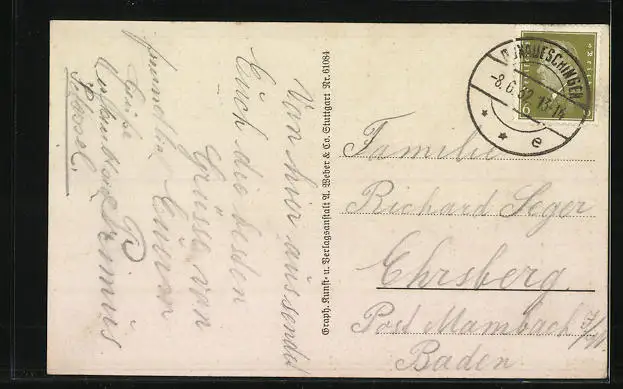 Von hier aus sendet
Euch die besten
Grüsse von
Euren
Primus.
freundliche
Grüße
Schossel.
Graph. Kunst- u. Verlagsanstalt A. Weber & Co. Stuttgart Nr. 61084
DONAUESCHINGEN
-8.6.32.13-14
* * e
6
Familie
Richard Seger
Ehrsberg.
Post Mambach
Baden